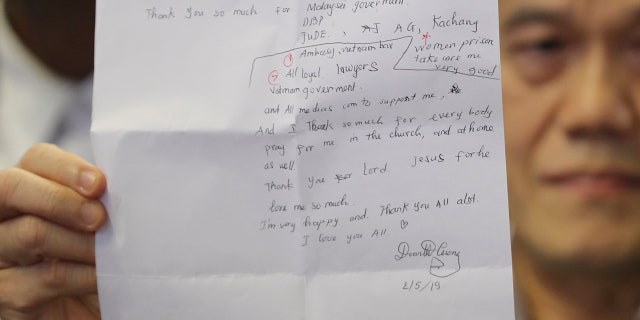 Thank you so much for Malaysia goverment.
DBP
JUDE., AJ AG, Kachang
① Ambasy, vetnam bar
* women prison
take care me
very good
② All loyal lawyers
vietnam goverment.
and All medias com to support me,
And I Thank so much for every body
pray for me in the church, and at home
as well.
Thank you for Lord Jesus for he
love me so much.
I'm very happy and. Thank you All alot.
I love you All. ♡
Doan Huong
2/5/19